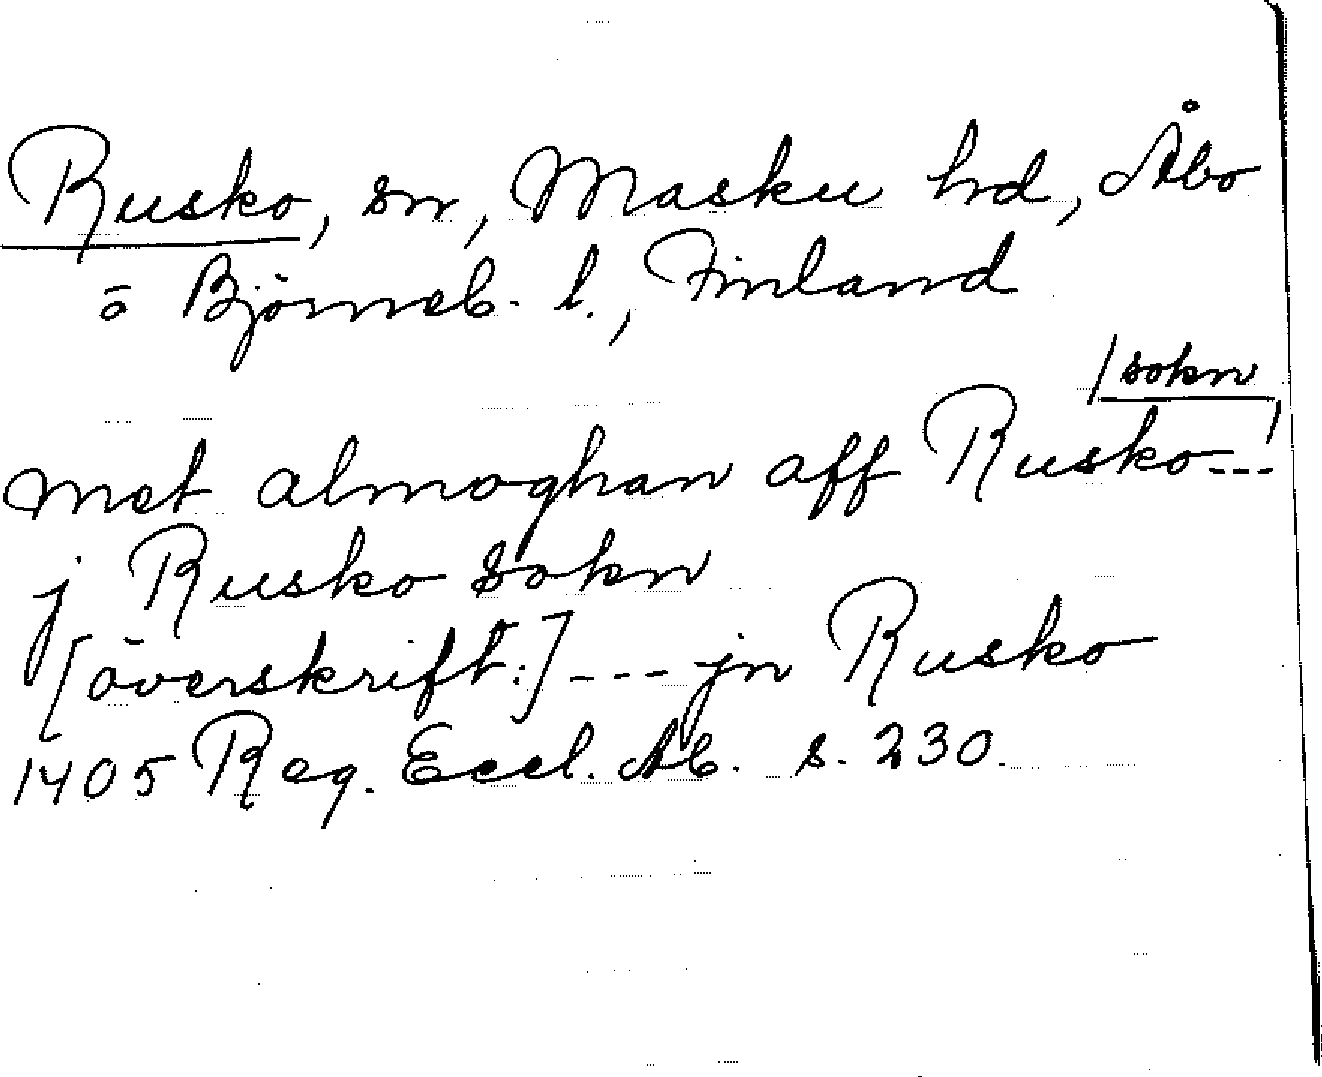 Rusko, sn, Masku hd, Åbo
o Björneb. l., Finland
/sokn
met almoghan aff Rusko---/
j Rusko sokn
[överskrift:] --- jn Rusko
1405 Reg. Eccl. Ab. s. 230.